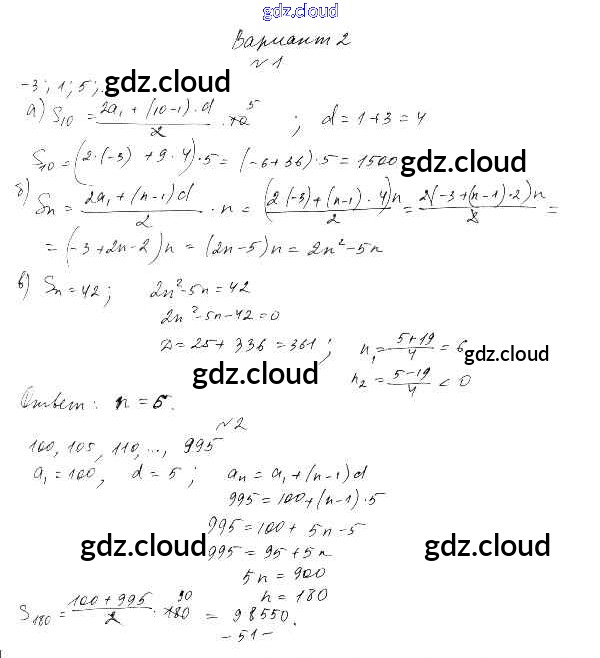 gdz.cloud
Вариант 2
№1
-3; 1; 5; gdz.cloud
а) S₁₀ = (2a₁ + (10-1)·d)/2 · 10 5 ; d = 1+3 = 4
S₁₀ = (2·(-3) + 9·4)·5 = (-6+36)·5 = 1500 gdz.cloud
б) Sₙ = (2a₁ + (n-1)d)/2 · n = (2(-3) + (n-1)·4)n/2 = 2(-3+(n-1)·2)n/2 =
= (-3+2n-2)n = (2n-5)n = 2n²-5n
в) Sₙ = 42; 2n²-5n = 42
2n²-5n-42 = 0
D = 25+336 = 361; n₁ = (5+19)/4 = 6 gdz.cloud
gdz.cloud n₂ = (5-19)/4 < 0
Ответ: n = 6.
№2
100, 105, 110, ..., 995
a₁ = 100, d = 5; aₙ = a₁ + (n-1)d
995 = 100 + (n-1)·5
995 = 100 + 5n - 5
gdz.cloud 995 = 95 + 5n gdz.cloud
5n = 900
n = 180
S₁₈₀ = (100 + 995)/2 · 180 90 = 98550.
-51-